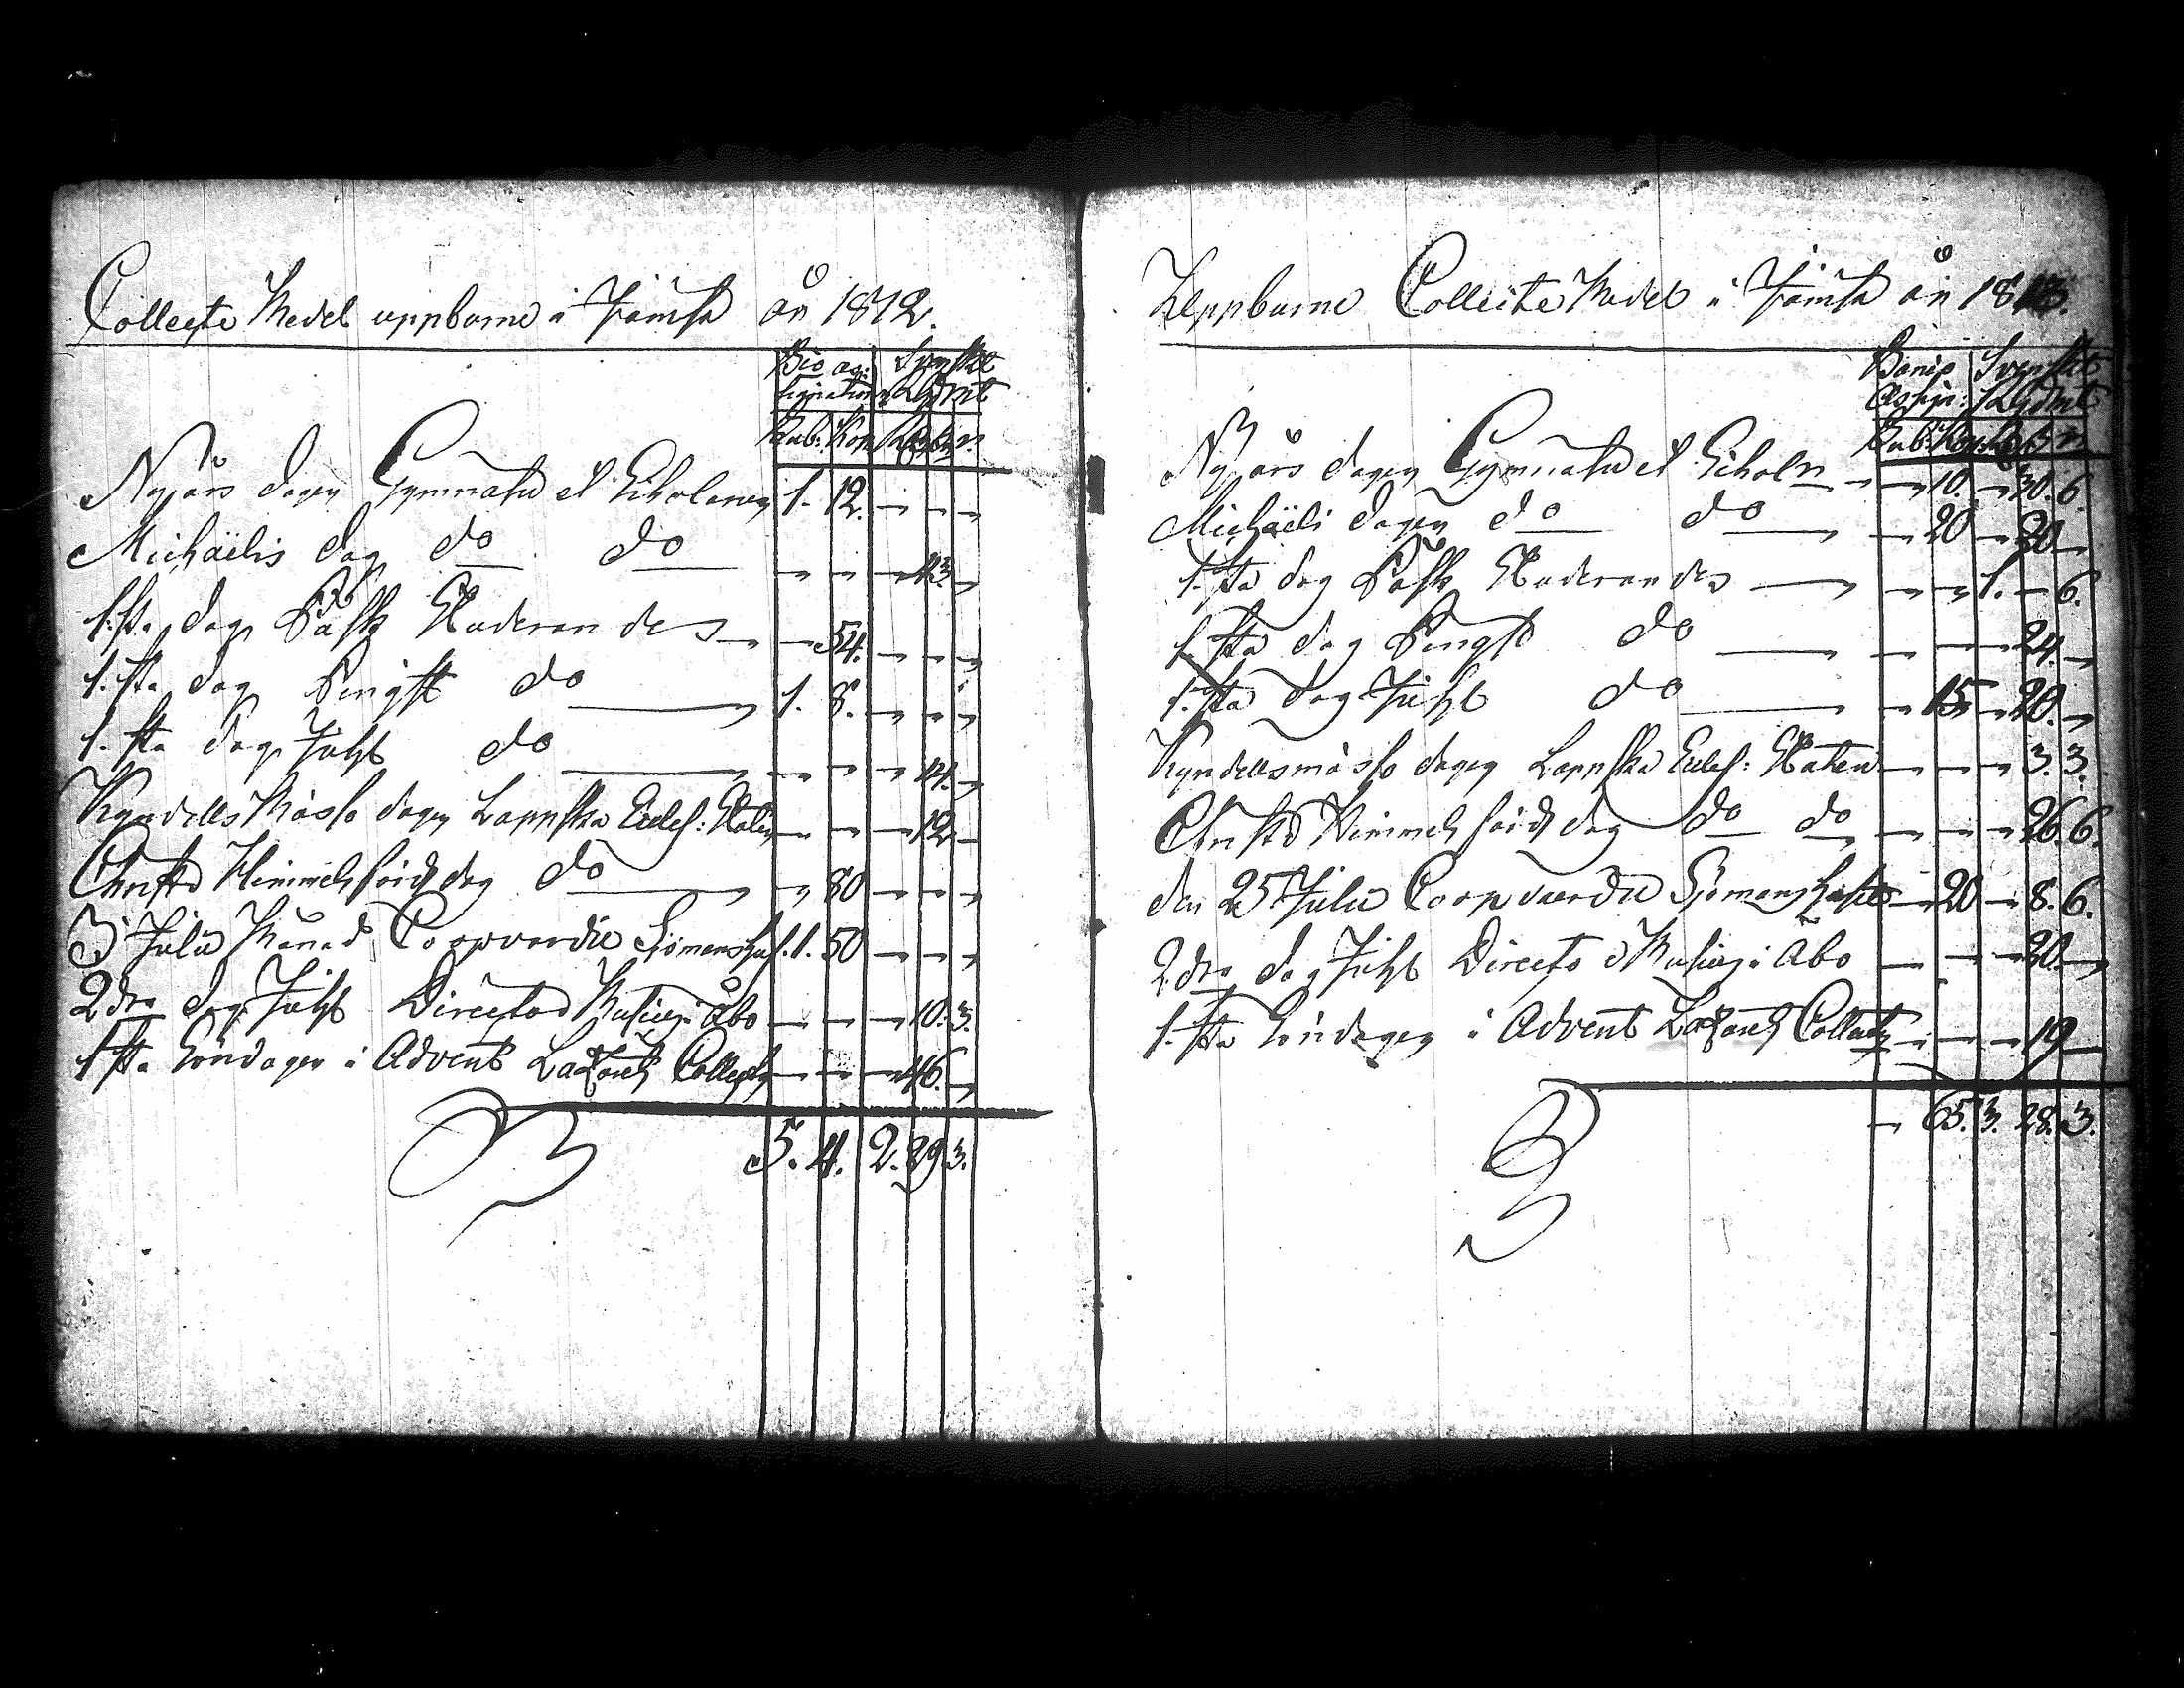 Collecte Medel uppburne i Jämsä år 1812.
Bco as: Svenskt
signationer Rgdmt
Rub: Kop R sk r
Nyjårs dagen Gymnasii et Scholarum 1. 12. — — —
Michäelis dag do do — — — 43. —
1:sta dag Påsk Huderandes — 54. — — —
1.sta dag Pingst do 1. 8. — — —
1.sta dag Juhl do — — — 14. —
Kyndells Mässo dagen Lappska Eccles: Staten — — — 12 —
Christi Himmelsfärds dag do — 80 — — —
I Julii Månad Coopvardie Sjömanshus. 1. 50 — — —
2dra dag Juhl Directo Musices i Åbo — — — 10. 3.
1sta Söndagen i Advent Lazaretts Collecten — — — 46. —
5. 4. 2. 29. 3.
Uppburne Collecte Medel i Jämsä år 1813.
Banco Svenskt
Assign: Rgdmt
Rub: Kop R sk r
Nyjårs dagen Gymnasii et Schol — 10. — 30. 6
Michäeli dagen do do — 20 — 20 —
1.sta dag Påsk Huderandes — — 1. — 6.
1.sta dag Pingst do — — — 24. —
1.sta dag Juhl do — 15 — 20. —
Kyndellsmässo dagen Lappska Eccles: Staten — — — 3. 3.
Christi Himmelsfärds dag do do — — — 26. 6.
den 25 Julii Coopvardie Sjömanshuset — 20 — 8. 6.
2dra dag Juhl Directo Musices i Åbo — — — 20. —
1.sta Söndagen i Advent Lazaretts Collecten — — — 19 —
— 65. 3. 28. 3.